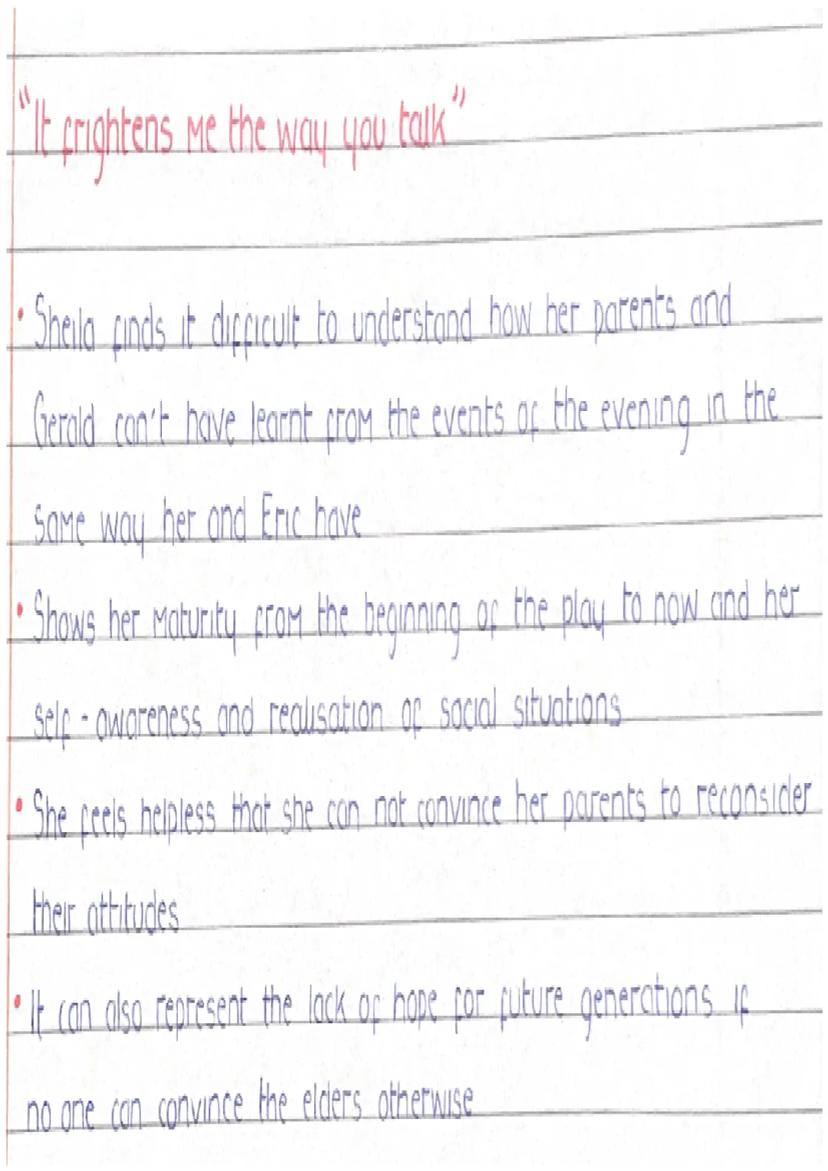 "It frightens me the way you talk"
• Sheila finds it difficult to understand how her parents and
Gerald can't have learnt from the events of the evening in the
same way her and Eric have
• Shows her maturity from the beginning of the play to now and her
self-awareness and realisation of social situations
• She feels helpless that she can not convince her parents to reconsider
their attitudes
• It can also represent the lack of hope for future generations if
no one can convince the elders otherwise